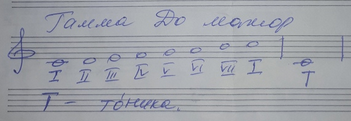 Гамма До мажор
I II III IV V VI VII I T
T – тоника.